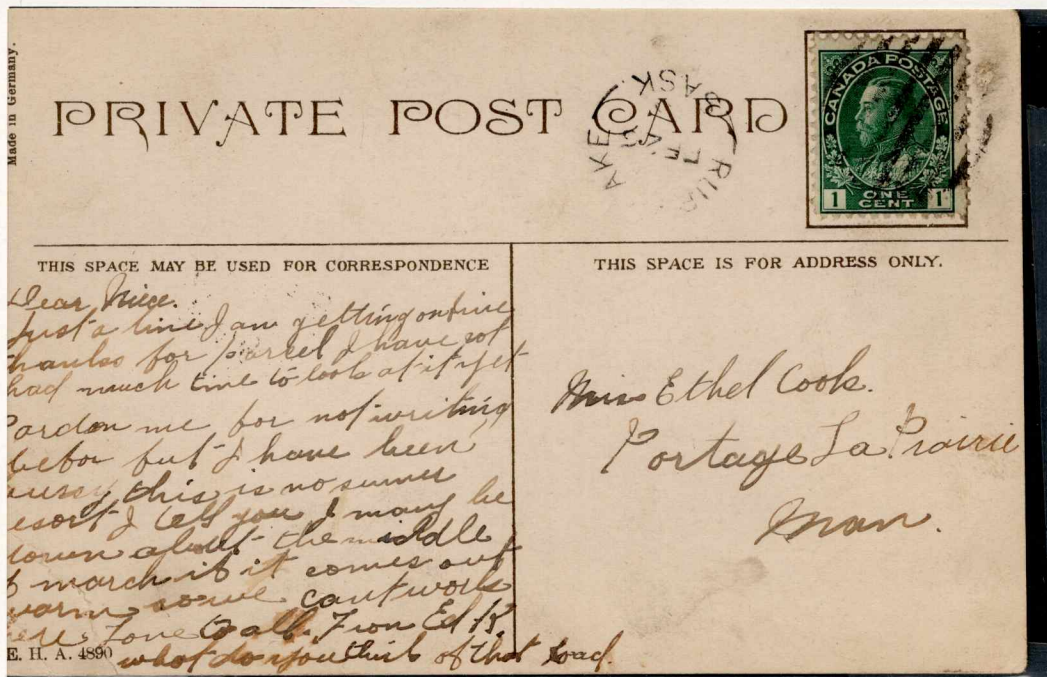 Made in Germany.
PRIVATE POST CARD
AKE
SASK
FE
RUS
CANADA POSTAGE
1 ONE CENT 1
THIS SPACE MAY BE USED FOR CORRESPONDENCE
THIS SPACE IS FOR ADDRESS ONLY.
Dear Niece.
Just a line I am getting on fine
thanks for parcel I have not
had much time to look at it yet
Pardon me for not writing
befor but I have been
bussy this is no summer
resort I tell you I may be
down about the middle
of march if it comes out
warm so we cant work
here Love to all. From Ed K.
what do you think of that load.
E. H. A. 4890
Miss Ethel Cook.
Portage La Prairie
Man.